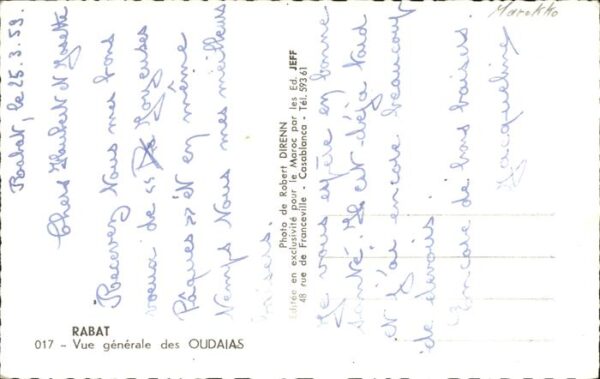 Marokko
Rabat, le 25.3.59.
Chers Hubert et Josette
Recevez tous mes bons
voeux de "Joyeuses
Pâques" et en même
temps tous mes meilleurs
baisers.
Photo de Robert DIRENN
Editée en exclusivité pour le Maroc par les Ed. JEFF
48 rue de Franceville - Casablanca - Tél. 593 61
Je vous espère en bonne
santé. Il est déjà tard
et j'ai encore beaucoup
de devoirs.
Encore de bons baisers.
Jacqueline
RABAT
017 - Vue générale des OUDAIAS